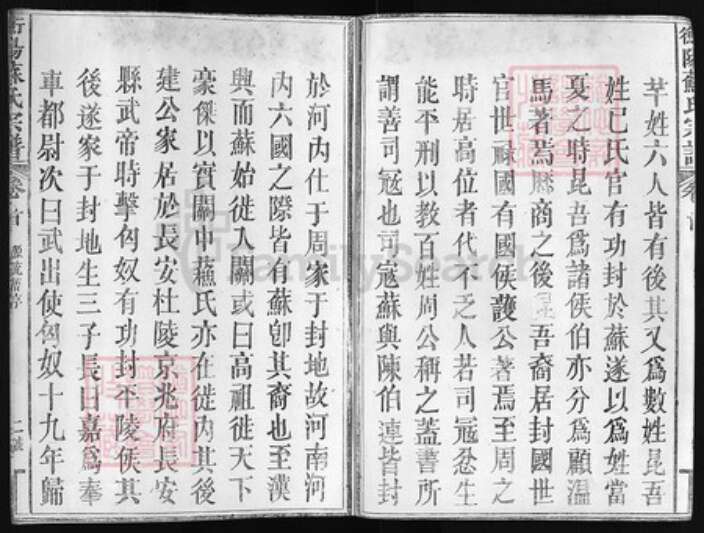 芊姓六人皆有後其又為數姓昆吾
姓已氏官有功封於蘇遂以為姓當
夏之時昆吾為諸侯伯亦分為顧溫
馬著焉歷商之後昆吾裔居封國世
官世祿國有國侯護公著焉至周之
時居高位者代不乏人若司寇忿生
能平刑以教百姓周公稱之蓋書所
謂善司冦也司寇蘇與陳伯連皆封
於河內仕于周家于封地故河南河
內六國之際皆有蘇卽其裔也至漢
興而蘇始徙入關或曰高祖徙天下
豪傑以實關中蘓氏亦在徙內其後
建公家居於長安杜陵京兆府長安
縣武帝時擊匈奴有功封平陵侯其
後遂家于封地生三子長曰嘉為奉
車都尉次曰武出使匈奴十九年歸
衡陽蘇氏宗譜
卷首
FamilySearch